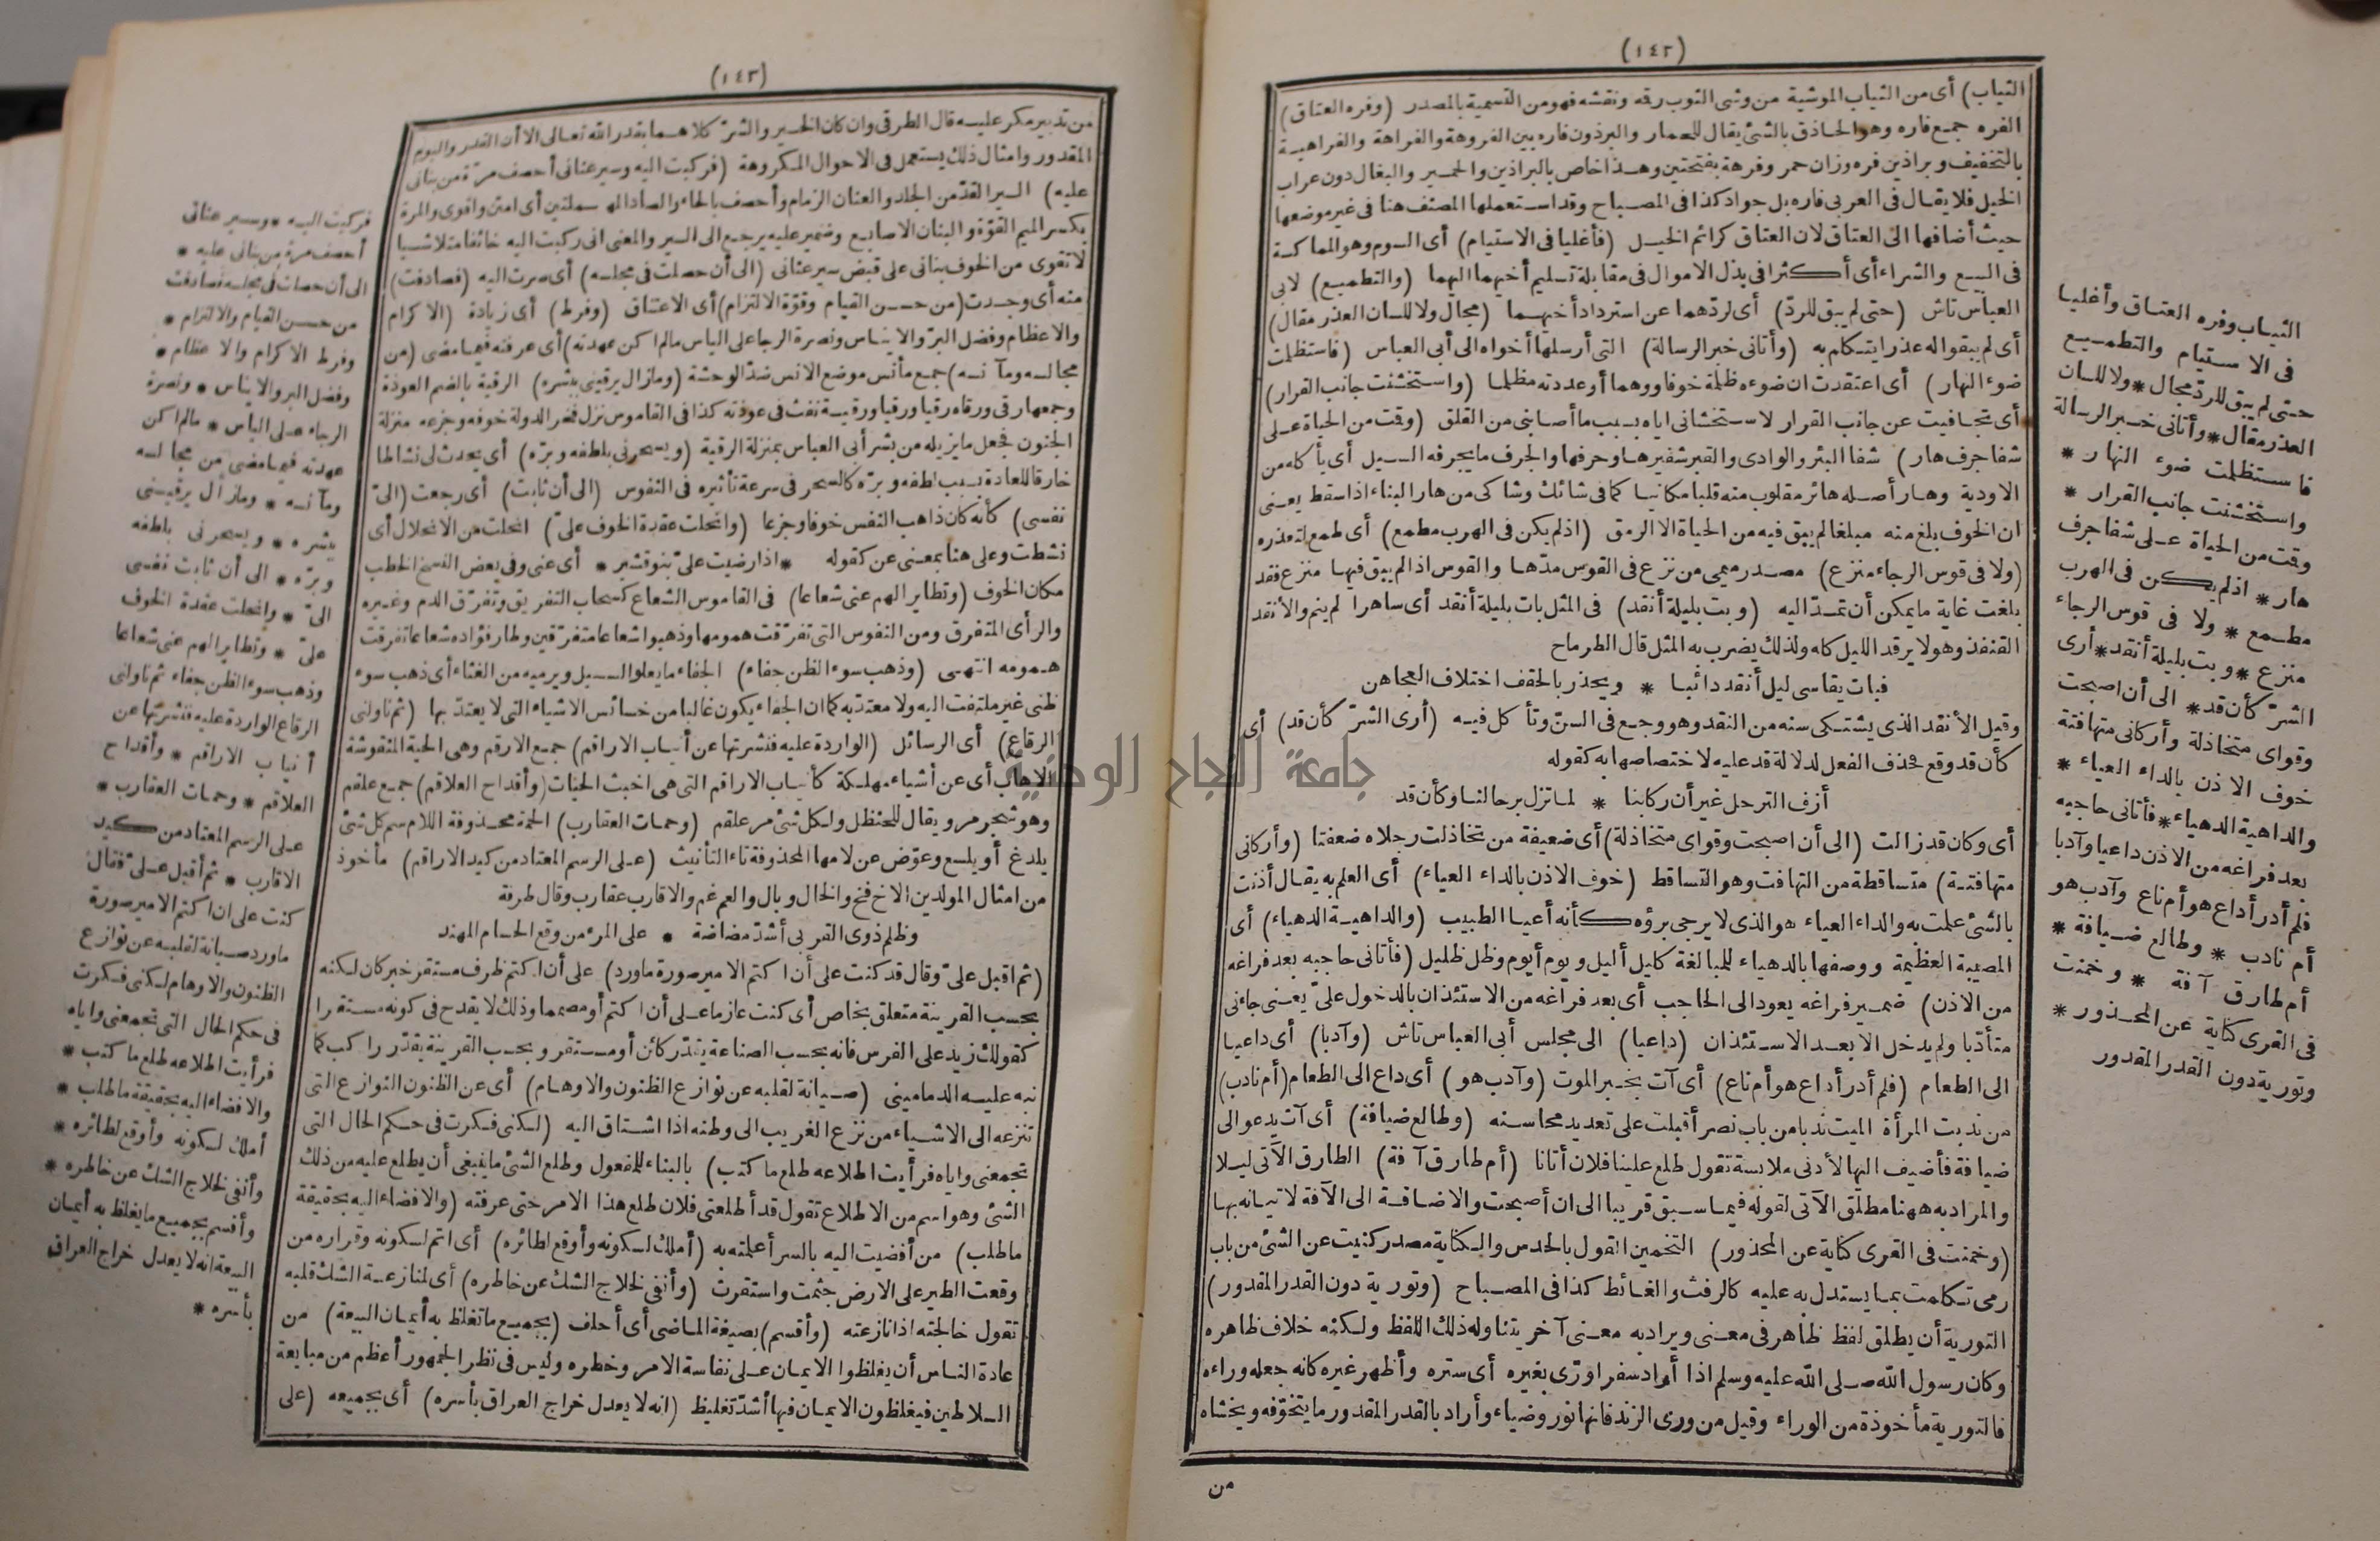 (١٤٢)
الثياب) أى من الثياب الموشية من وشى الثوب رقه ونقشه فهو من التسمية بالمصدر (وفره العتاق)
الفره جمع فاره وهو الحاذق بالشئ يقال للحمار والبرذون فاره بين الفروهة والفراهة والفراهية
بالتخفيف وبراذين فره وزان حمر وفرهة بفتحتين وهذا خاص بالبراذين والحمير والبغال دون عراب
الخيل فلا يقال فى العربى فاره بل جواد كذا فى المصباح وقد استعملها المصنف هنا فى غير موضعها
حيث أضافها الى العتاق لان العتاق كرائم الخيل (فأغليا فى الاستيام) أى السوم وهو المماكسة
فى البيع والشراء أى أكثرا فى بذل الاموال فى مقابلة تسليم أخيهما اليهما (والتطميع) لابى
العباس تاش (حتى لم يبق للردّ) أى لردّهما عن استرداد أخيهما (مجال ولا للسان العذر مقال)
أى لم يبقواله عذرا يتكلم به (وأتانى خبر الرسالة) التى أرسلها أخواه الى أبى العباس (فاستظلمت
ضوء النهار) أى اعتقدت ان ضوءه ظلمة خوفا ووهما أو عددته مظلما (واستخشنت جانب القرار)
أى تجافيت عن جانب القرار لاستخشانى اياه بسبب ما أصابنى من القلق (وقت من الحياة على
شفا جرف هار) شفا البئر والوادى والقبر شفيرها وحرفها والجرف ما يجرفه السيل أى يأكله من
الاودية وهار أصله هائر مقلوب منه قلبا مكانيا كما فى شائك وشاكى من هار البناء اذا سقط يعنى
ان الخوف بلغ منه مبلغا لم يبق فيه من الحياة الا الرمق (اذ لم يكن فى الهرب مطمع) أى طمع لتعذره
(ولا فى قوس الرجاء منزع) مصدر ميمى من نزع فى القوس مدّها والقوس اذا لم يبق فيها منزع فقد
بلغت غاية ما يمكن أن تمدّ اليه (وبت بليلة أنقد) فى المثل بات بليلة أنقد أى ساهرا لم ينم والأنقد
القنفذ وهو لا يرقد الليل كله ولذلك يضرب به المثل قال الطرماح
فبات يقاسى ليل أنقد دائبا * ويحذر بالحقف اختلاف العجاهن
وقيل الأنقد الذى يشتكى سنه من النقد وهو وجع فى السنّ وتأكل فيه (أرى الشرّ كأن قد) أى
كأن قد وقع فحذف الفعل لدلالة قد عليه لاختصاصها به كقوله
أزف الترحل غير أن ركابنا * لما تزل برحالنا وكأن قد
أى وكان قد زالت (الى أن اصبحت وقواى متخاذلة) أى ضعيفة من تخاذلت رجلاه ضعفتا (وأركانى
متهافتة) متساقطة من التهافت وهو التساقط (خوف الاذن بالداء العياء) أى العلم به يقال أذنت
بالشئ علمت به والداء العياء هو الذى لا يرجى برؤه كأنه أعيا الطبيب (والداهية الدهياء) أى
المصيبة العظيمة ووصفها بالدهياء للمبالغة كليل أليل ويوم أيوم وظل ظليل (فأتانى حاجبه بعد فراغه
من الاذن) ضمير فراغه يعود الى الحاجب أى بعد فراغه من الاستئذان بالدخول علىّ يعنى جاءنى
متأدّبا ولم يدخل الا بعد الاستئذان (داعيا) الى مجلس أبى العباس تاش (وآدبا) أى داعيا
الى الطعام (فلم أدر أداع هو أم ناع) أى آت بخبر الموت (وآدب هو) أى داع الى الطعام (أم نادب)
من ندبت المرأة الميت ندبا من باب نصر أقبلت على تعديد محاسنه (وطالع ضيافة) أى آت يدعو الى
ضيافة فأضيف اليها لأدنى ملابسة تقول طلع علينا فلان أتانا (أم طارق آفة) الطارق الآتى ليلا
والمراد به ههنا مطلق الآتى لقوله فيما سبق قريبا الى ان أصبحت والاضافة الى الآفة لاتيانه بها
(وخمنت فى القرى كناية عن المحذور) التخمين القول بالحدس والكناية مصدر كنيت عن الشئ من باب
رمى تكلمت بما يستدل به عليه كالرفث والغائط كذا فى المصباح (وتورية دون القدر المقدور)
التورية أن يطلق لفظ ظاهر فى معنى ويراد به معنى آخر يتناوله ذلك اللفظ ولكنه خلاف ظاهره
وكان رسول الله صلى الله عليه وسلم اذا أراد سفرا ورّى بغيره أى ستره وأظهر غيره كانه جعله وراءه
فالتورية مأخوذة من الوراء وقيل من ورى الزند فانها نور وضياء وأراد بالقدر المقدور ما يتخوّفه ويخشاه
من
الثياب وفره العتاق وأغليا
فى الاستيام والتطميع
حتى لم يبق للردّ مجال * ولا للسان
العذر مقال * وأتانى خبر الرسالة
فاستظلمت ضوء النهار *
واستخشنت جانب القرار *
وقت من الحياة على شفا جرف
هار * اذ لم يكن فى الهرب
مطمع * ولا فى قوس الرجاء
منزع * وبت بليلة أنقد * أرى
الشرّ كأن قد * الى أن اصبحت
وقواى متخاذلة وأركانى متهافتة
خوف الاذن بالداء العياء *
والداهية الدهياء * فأتانى حاجبه
بعد فراغه من الاذن داعيا وآدبا
فلم أدر أداع هو أم ناع وآدب هو
أم نادب * وطالع ضيافة *
أم طارق آفة * وخمنت
فى القرى كناية عن المحذور *
وتورية دون القدر المقدور
(١٤٣)
من تدبير مكر عليه قال الطرقى وان كان الخير والشرّ كلاهما بقدر الله تعالى الا أن القدر واليوم
المقدور وامثال ذلك يستعمل فى الاحوال المكروهة (فركبت اليه وسير عنانى أحصف مرّة من بنانى
عليه) السير القدّ من الجلد والعنان الزمام وأحصف بالحاء والصاد المهملتين أى امتن واقوى والمرة
بكسر الميم القوّة والبنان الاصابع وضمير عليه يرجع الى السير والمعنى انى ركبت اليه خائفا متلاشيا
لا تقوى من الخوف بنانى على قبض سير عنانى (الى أن حصلت فى مجلسه) أى صرت اليه (فصادفت)
منه أى وجدت (من حسن القيام وقوّة الالتزام) أى الاعتناق (وفرط) أى زيادة (الاكرام
والاعظام وفضل البرّ والايناس ونصرة الرجا على الياس ما لم اكن عهدته) أى عرفته فيما مضى (من
مجالسه ومآنسه) جمع مأنس موضع الانس ضدّ الوحشة (ومازال يرقينى ببشره) الرقية بالضم العوذة
وجمعها رقى ورقاه رقيا ورقيا ورقية نفث فى عوذته كذا فى القاموس نزل فخر الدولة خوفه وجزعه منزلة
الجنون فجعل ما يزيله من بشر أبى العباس بمنزلة الرقية (ويسحرنى بلطفه وبرّه) أى يحدث لى نشاطا
خارقا للعادة بسبب لطفه وبرّه كالسحر فى سرعة تأثيره فى النفوس (الى أن ثابت) أى رجعت (الىّ
نفسى) كأنه كان ذاهب النفس خوفا وجزعا (وانحلت عقدة الخوف علىّ) انحلت من الانحلال أى
نشطت وعلى هنا بمعنى عن كقوله * اذا رضيت علىّ بنو قشير * أى عنى وفى بعض النسخ الخطب
مكان الخوف (وتطاير الهم عنى شعاعا) فى القاموس الشعاع كسحاب التفريق وتفرّق الدم وغيره
والرأى المتفرق ومن النفوس التى تفرّقت همومها وذهبوا شعاعا متفرّقين وطار فؤاده شعاعا تفرقت
همومه انتهى (وذهب سوء الظن جفاء) الجفاء ما يعلو السيل ويرميه من الغثاء أى ذهب سوء
ظنى غير ملتفت اليه ولا معتدّ به كما ان الجفاء يكون غالبا من خسائس الاشياء التى لا يعتدّ بها (ثم ناولنى
الرقاع) أى الرسائل (الواردة عليه فنشرتها عن أنياب الاراقم) جمع الارقم وهى الحية المنقوشة
الاهاب أى عن أشياء مهلكة كأنياب الاراقم التى هى اخبث الحيات (وأقداح العلاقم) جمع علقم
وهو شجر مر ويقال للحنظل ولكل شئ مر علقم (وحمات العقارب) الحمة محذوفة اللام سم كل شئ
يلدغ أو يلسع وعوّض عن لامها المحذوفة تاء التأنيث (على الرسم المعتاد من كيد الاراقم) مأخوذ
من امثال المولدين الاخ فخ والخال وبال والعم غم والاقارب عقارب وقال طرفة
وظلم ذوى القربى أشدّ مضاضة * على المرء من وقع الحسام المهند
(ثم اقبل علىّ وقال قد كنت على أن اكتم الامير صورة ماورد) على أن اكتم ظرف مستقر خبر كان لكنه
بحسب القرينة متعلق بخاص أى كنت عازما على أن اكتم أو مصمما وذلك لا يقدح فى كونه مستقرا
كقولك زيد على الفرس فانه بحسب الصناعة يقدّر كائن أو مستقر وبحسب القرينة يقدّر راكب كما
نبه عليه الدمامينى (صيانة لقلبه عن نوازع الظنون والاوهام) أى عن الظنون النوازع التى
تنزعه الى الاشياء من نزع الغريب الى وطنه اذا اشتاق اليه (لكنى فكرت فى حكم الحال التى
تجمعنى واياه فرأيت اطلاعه طلع ما كتب) بالبناء للمفعول وطلع الشئ ما ينبغى أن يطلع عليه من ذلك
الشئ وهو اسم من الاطلاع تقول قد أطلعنى فلان طلع هذا الامر حتى عرفته (والافضاء اليه بحقيقة
ماطلب) من أفضيت اليه بالسر أعلمته به (أملك لسكونه وأوقع لطائره) أى اتم لسكونه وقراره من
وقعت الطير على الارض جثمت واستقرت (وأنفى لخلاج الشك عن خاطره) أى لمنازعة الشك قلبه
تقول خالجته اذا نازعته (وأقسم) بصيغة الماضى أى أحلف (بجميع ما تغلظ به أيمان البيعة) من
عادة الناس أن يغلظوا الايمان على نفاسة الامر وخطره وليس فى نظر الجمهور أعظم من مبايعة
السلاطين فيغلظون الايمان فيها أشدّ تغليظ (انه لا يعدل خراج العراق بأسره) أى بجميعه (على
فركبت اليه * وسير عنانى
أحصف مرة من بنانى عليه *
الى أن حصلت فى مجلسه فصادفت
من حسن القيام والالتزام *
وفرط الاكرام والاعظام *
وفضل البر والايناس * ونصرة
الرجاء على اليأس * مالم اكن
عهدته فيما مضى من مجالسه
ومآنسه * ومازال يرقينى
ببشره * ويسحرنى بلطفه
وبرّه * الى أن ثابت نفسى
الىّ * وانحلت عقدة الخوف
علىّ * وتطاير الهم عنى شعاعا
وذهب سوء الظن جفاء ثم ناولنى
الرقاع الواردة عليه فنشرتها عن
أنياب الاراقم * وأقداح
العلاقم * وحمات العقارب *
على الرسم المعتاد من كيد
الاقارب * ثم أقبل علىّ فقال
كنت على ان اكتم الامير صورة
ماورد صيانة لقلبه عن نوازع
الظنون والاوهام لكنى فكرت
فى حكم الحال التى تجمعنى واياه
فرأيت اطلاعه طلع ما كتب *
والافضاء اليه بحقيقة ماطلب *
أملك لسكونه وأوقع لطائره *
وأنفى لخلاج الشك عن خاطره *
وأقسم بجميع ما يغلظ به أيمان
البيعة انه لا يعدل خراج العراق
بأسره *
جامعة النجاح الوطنية